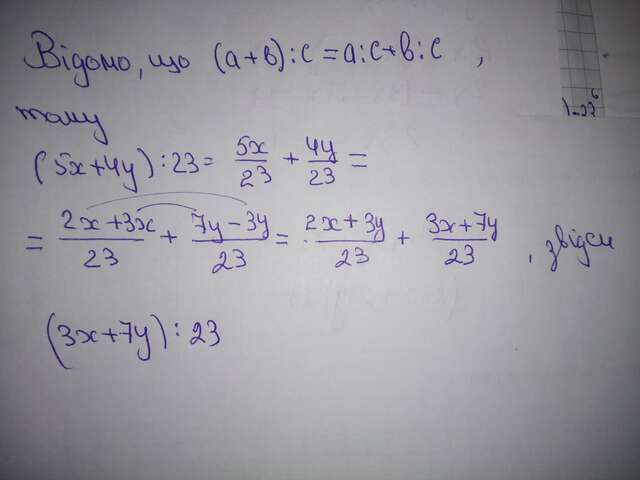 Відомо, що (a+b):c=a:c+b:c,
тому
(5x+4y):23= 5x/23 + 4y/23 =
= 2x+3x/23 + 7y-3y/23 = 2x+3y/23 + 3x+7y/23, звідси
(3x+7y):23